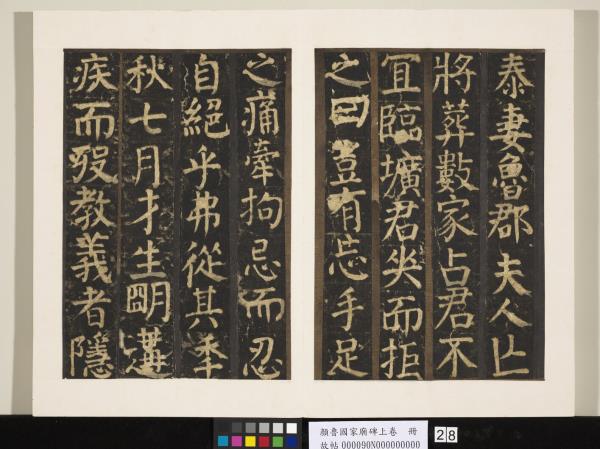 泰妻魯郡夫人亡
將葬數家占君不
宜臨壙君哭而拒
之曰豈有忘手足
之痛牽拘忌而忍
自絕乎弗從其秊
秋七月才生朙遘
疾而歿教義者隱
顏魯國家廟碑上卷 冊
故帖 000090N000000000
28